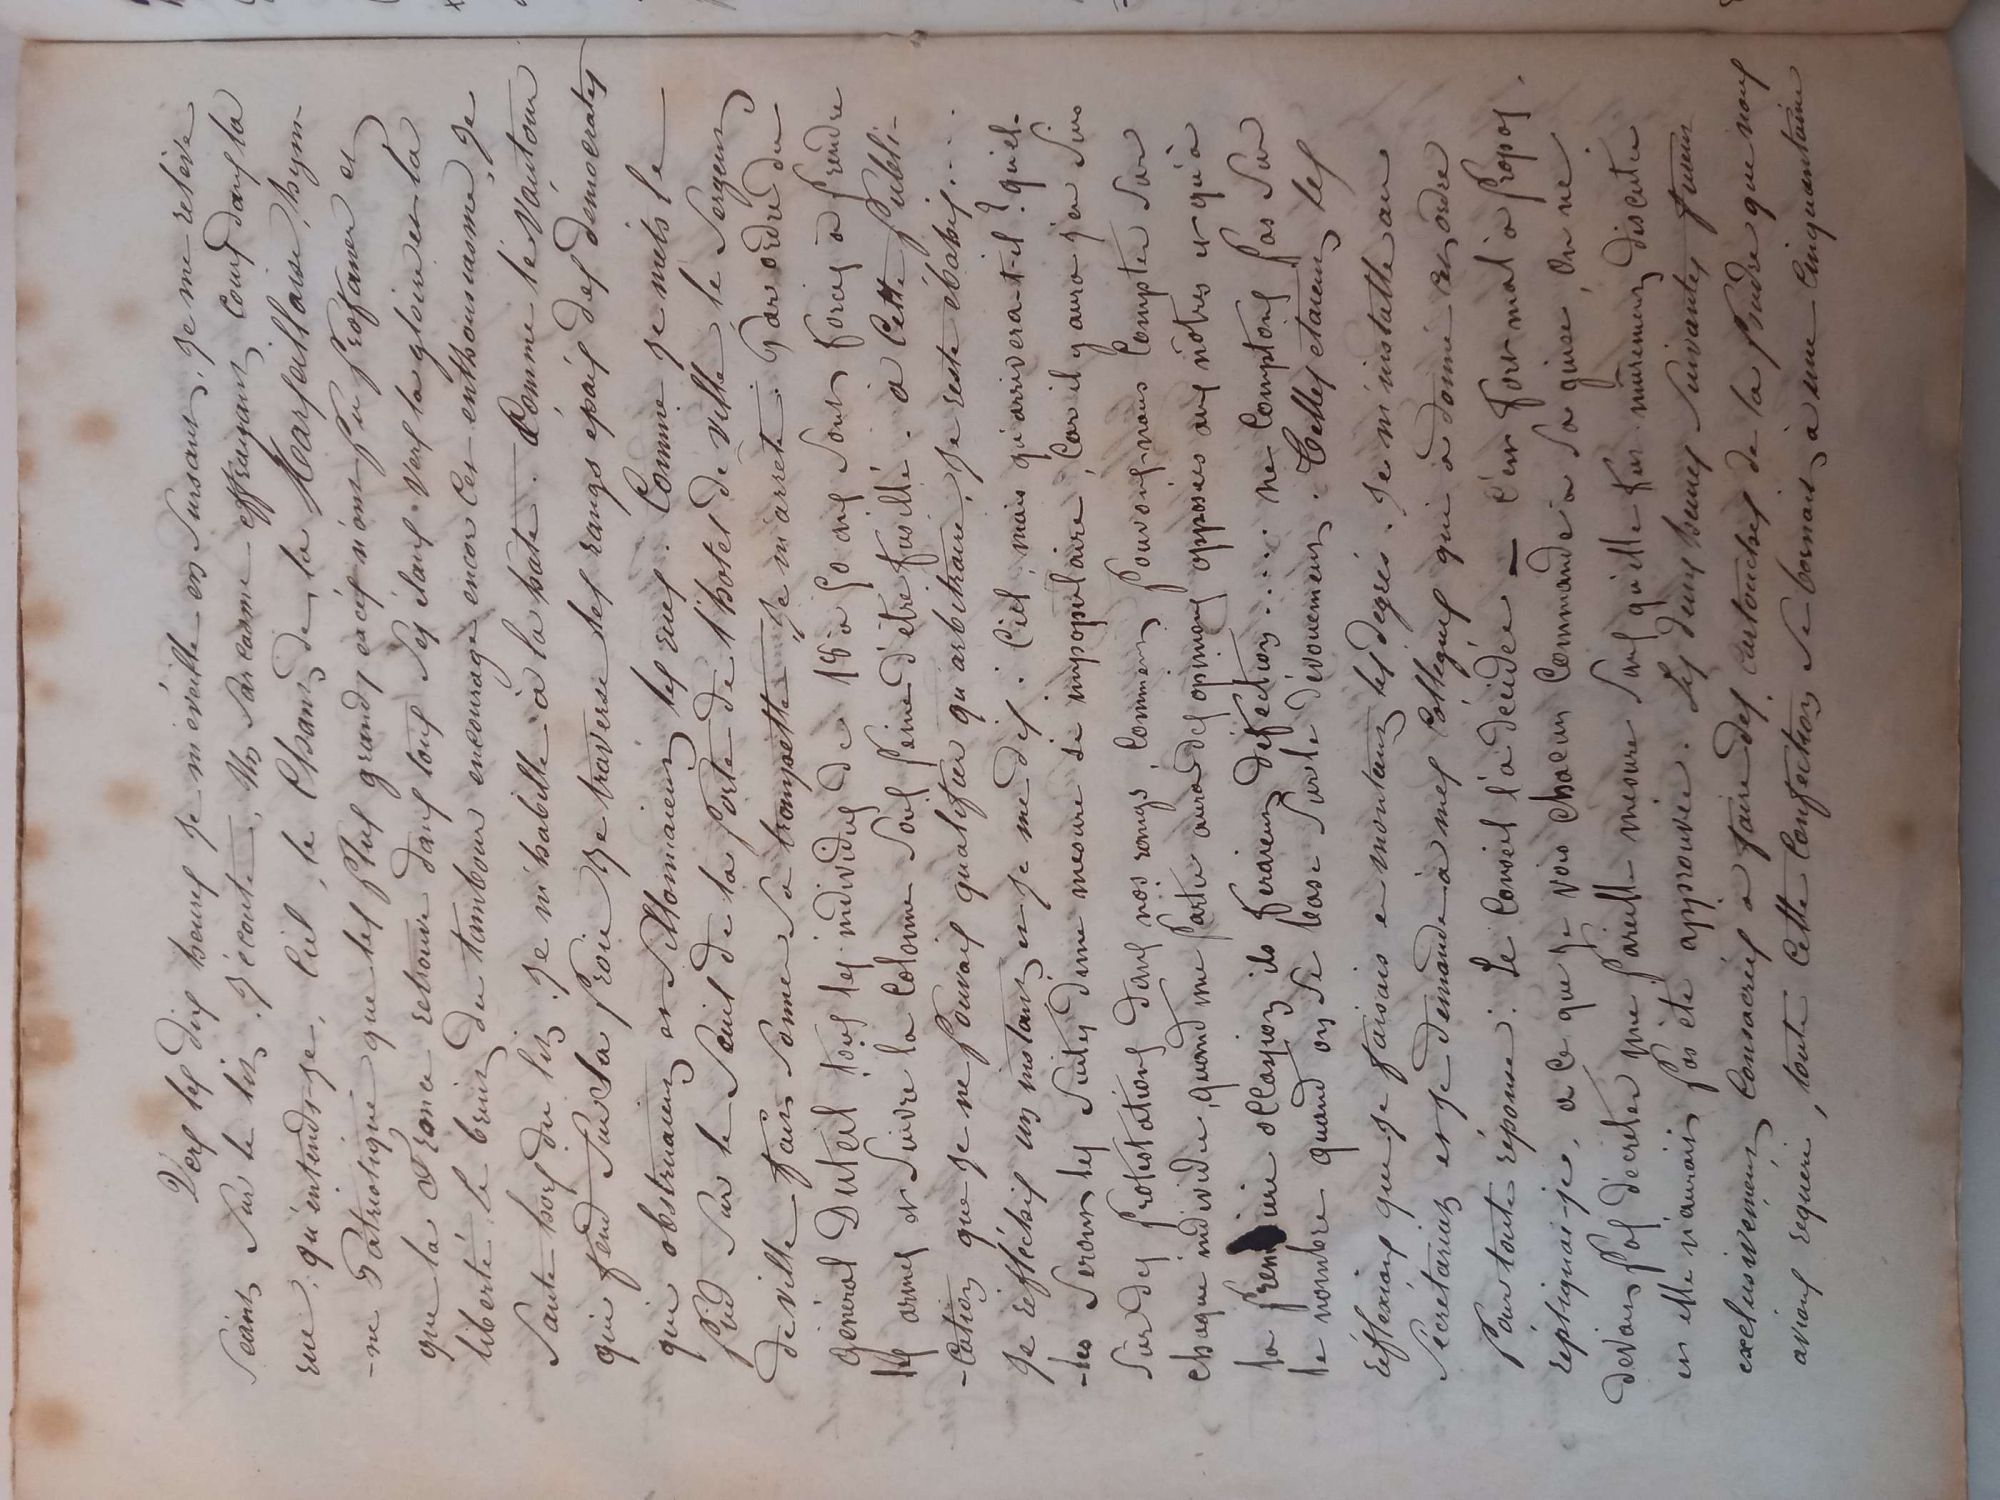 Vers les dix heures je m'éveille en sursaut, je me relève
séant sur le lit. J'écoute, Un vacarme effrayant court dans la
rue. qu'entends-je, Ciel, le Chant de la Marseillaise, hym
-ne Patriotique que les plus grands excès n'ont pu profaner et
que la France retrouve dans tous ses élans vers la gloire et la
liberté. le bruit du tambour encourage encor cet enthousiasme, je
saute hors du lit. Je m'habille à la hate. Comme le Vautour
qui fend sur sa proie, je traverse les rangs épais des démocrates
qui obstruaient et sillonnaient les rues. Comme je mets le
pied sur le seuil de la porte de l'hotel de ville le sergent
de ville fait sonner sa trompette. je m'arrete. Par ordre du
Général Duteil tous les individus de 18 à 50 ans sont forcés à prendre
les armes et suivre la colonne sous peine d'être fusillé. à cette publi-
-cation que je ne pouvais qualifier qu'arbitraire, je reste ébahis....
Je réfléchis un instant et je me dis : Ciel, mais qu'arrivera-t-il ? quel-
-les seront les suites d'une mesure si impopulaire, Car il y aura j'en suis
sur des protestations dans nos rangs, comment pouvons-nous compter sur
chaque individu, quand une partie aura des opinions opposées aux nôtres et qu'à
la première occasion ils feraient défection..... ne comptons pas sur
le nombre quand on se base sur le dévouement. Telles etaient les
réflexions que je faisais en montant les degrés. Je m'installe au
Sécretariat et je demande à mes Collègues qui a donné cet ordre
Pour toute réponse : Le Conseil l'a décidé — C'est fort mal à propos.
répliquai-je, à ce que je vois chacun commande à sa guise, On ne
devait pas décreter une pareille mesure sans qu'elle fut mûrement discutée
et elle n'aurait pas été approuvée. Les deux heures suivantes furent
exclusivement consacrées à faire des cartouches de la poudre que nous
avions requérie, toute cette confection se bornait à une cinquantaine